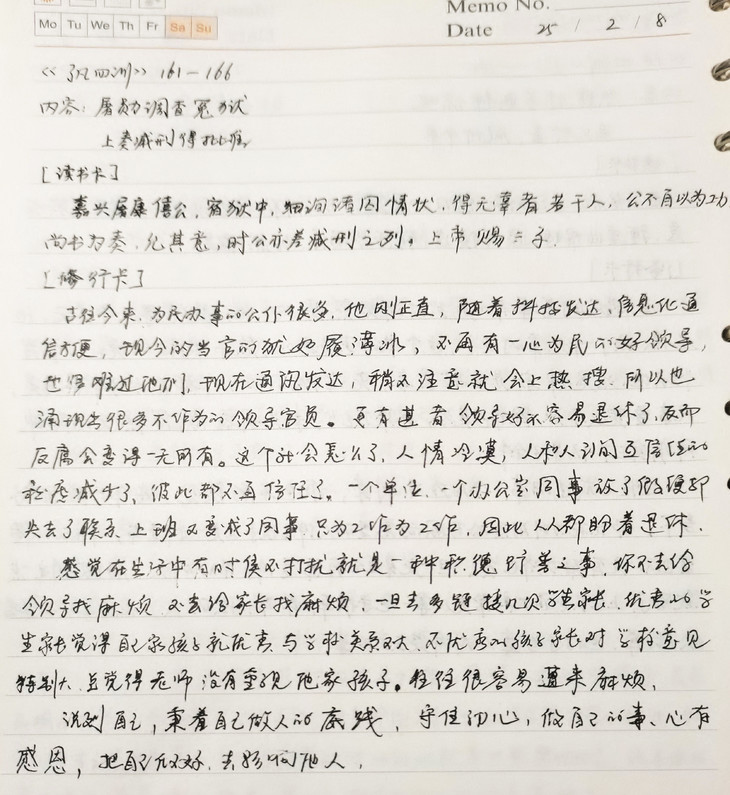 Memo No.
Mo Tu We Th Fr Sa Su
Date 25 / 2 / 8
《了凡四训》161-166
内容：屠勋调查冤狱
上奏减刑得批准
[读书卡]
嘉兴屠康僖公，宿狱中，细询诸囚情状，得无辜者若干人，公不自以为功
尚书为奏，允其意，时公亦差减刑之列。上帝赐三子.
[修行卡]
古往今来，为民办事的公仆很多，他刚正直，随着科技发达，信息化通
信方便，现今的当官的犹如履薄冰，不再有一心为民的好领导，
也能难过他们，现在通讯发达，稍不注意就会上热搜，所以也
涌现出很多不作为的领导官员。更有甚者领导好不容易退休了，反而
反腐会变得一无所有。这个社会怎么了，人情冷漠，人和人之间的互信任的
程度减少了，彼此都不再信任了。一个单位、一个办公室同事放了假便却
失去了联系 上班又变成了同事，只为工作为工作，因此人人都盼着退休.
感觉在生活中有时候不打扰就是一种积德行善之事，你不去给
领导找麻烦 不去给家长找麻烦，一旦去多链接几次学生家长，优秀的学
生家长觉得自己家孩子就优秀 与学校关系不大，不优秀的孩子家长对学校意见
特别大 总觉得老师没有重视他家孩子。往往很容易遭来麻烦.
说到自己，秉着自己做人的底线，守住初心，做自己的事、心有
感恩，把自己做好，去影响他人.